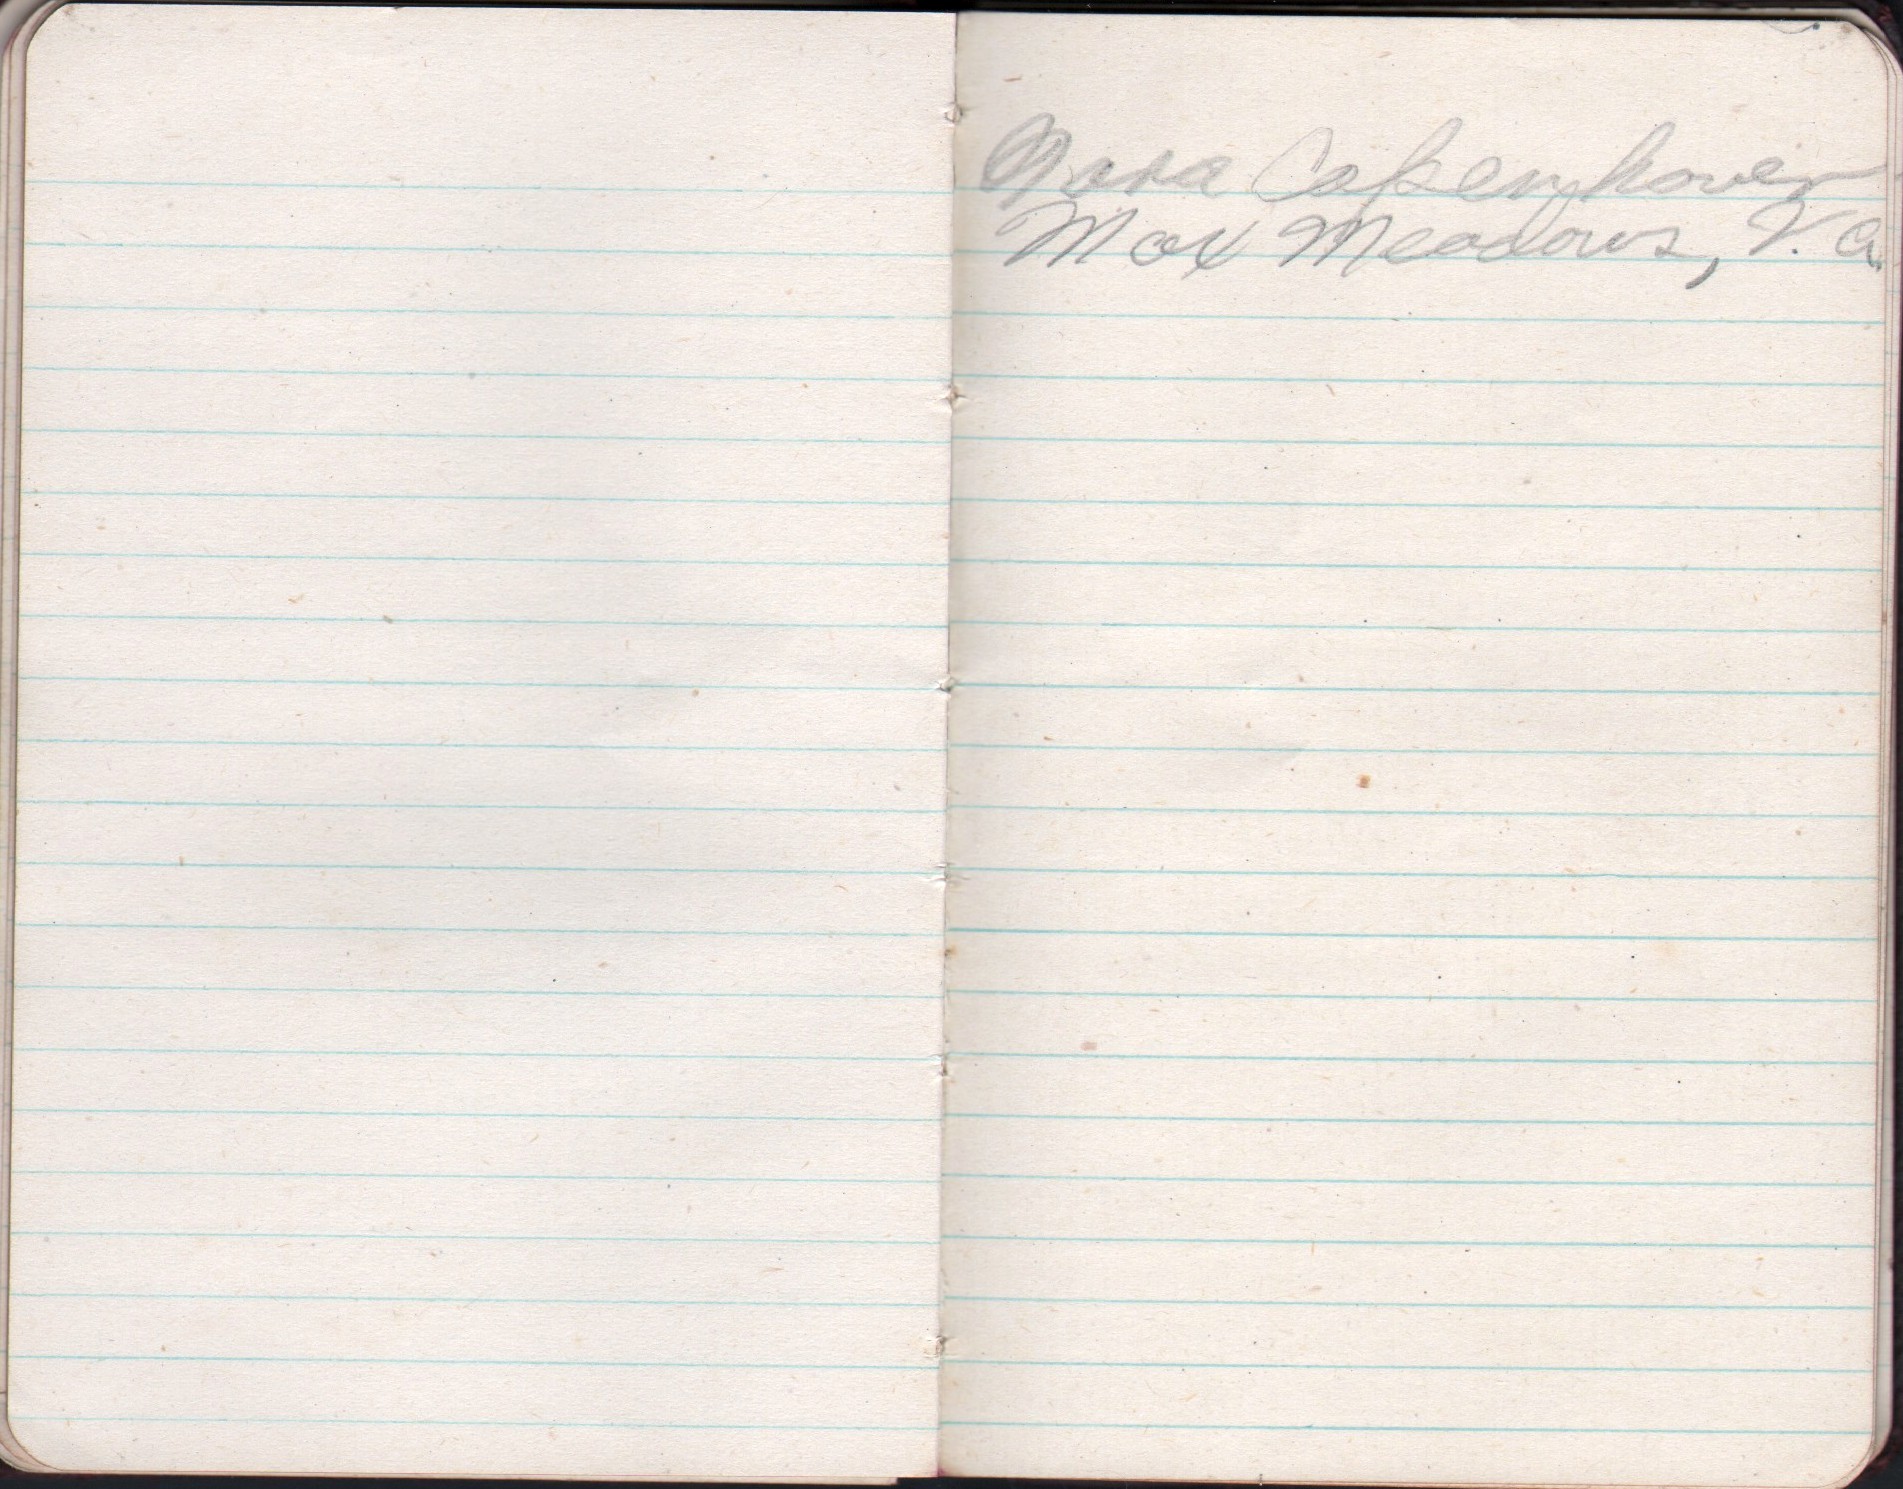 Nora Copenhover
Max Meadows, V. a.